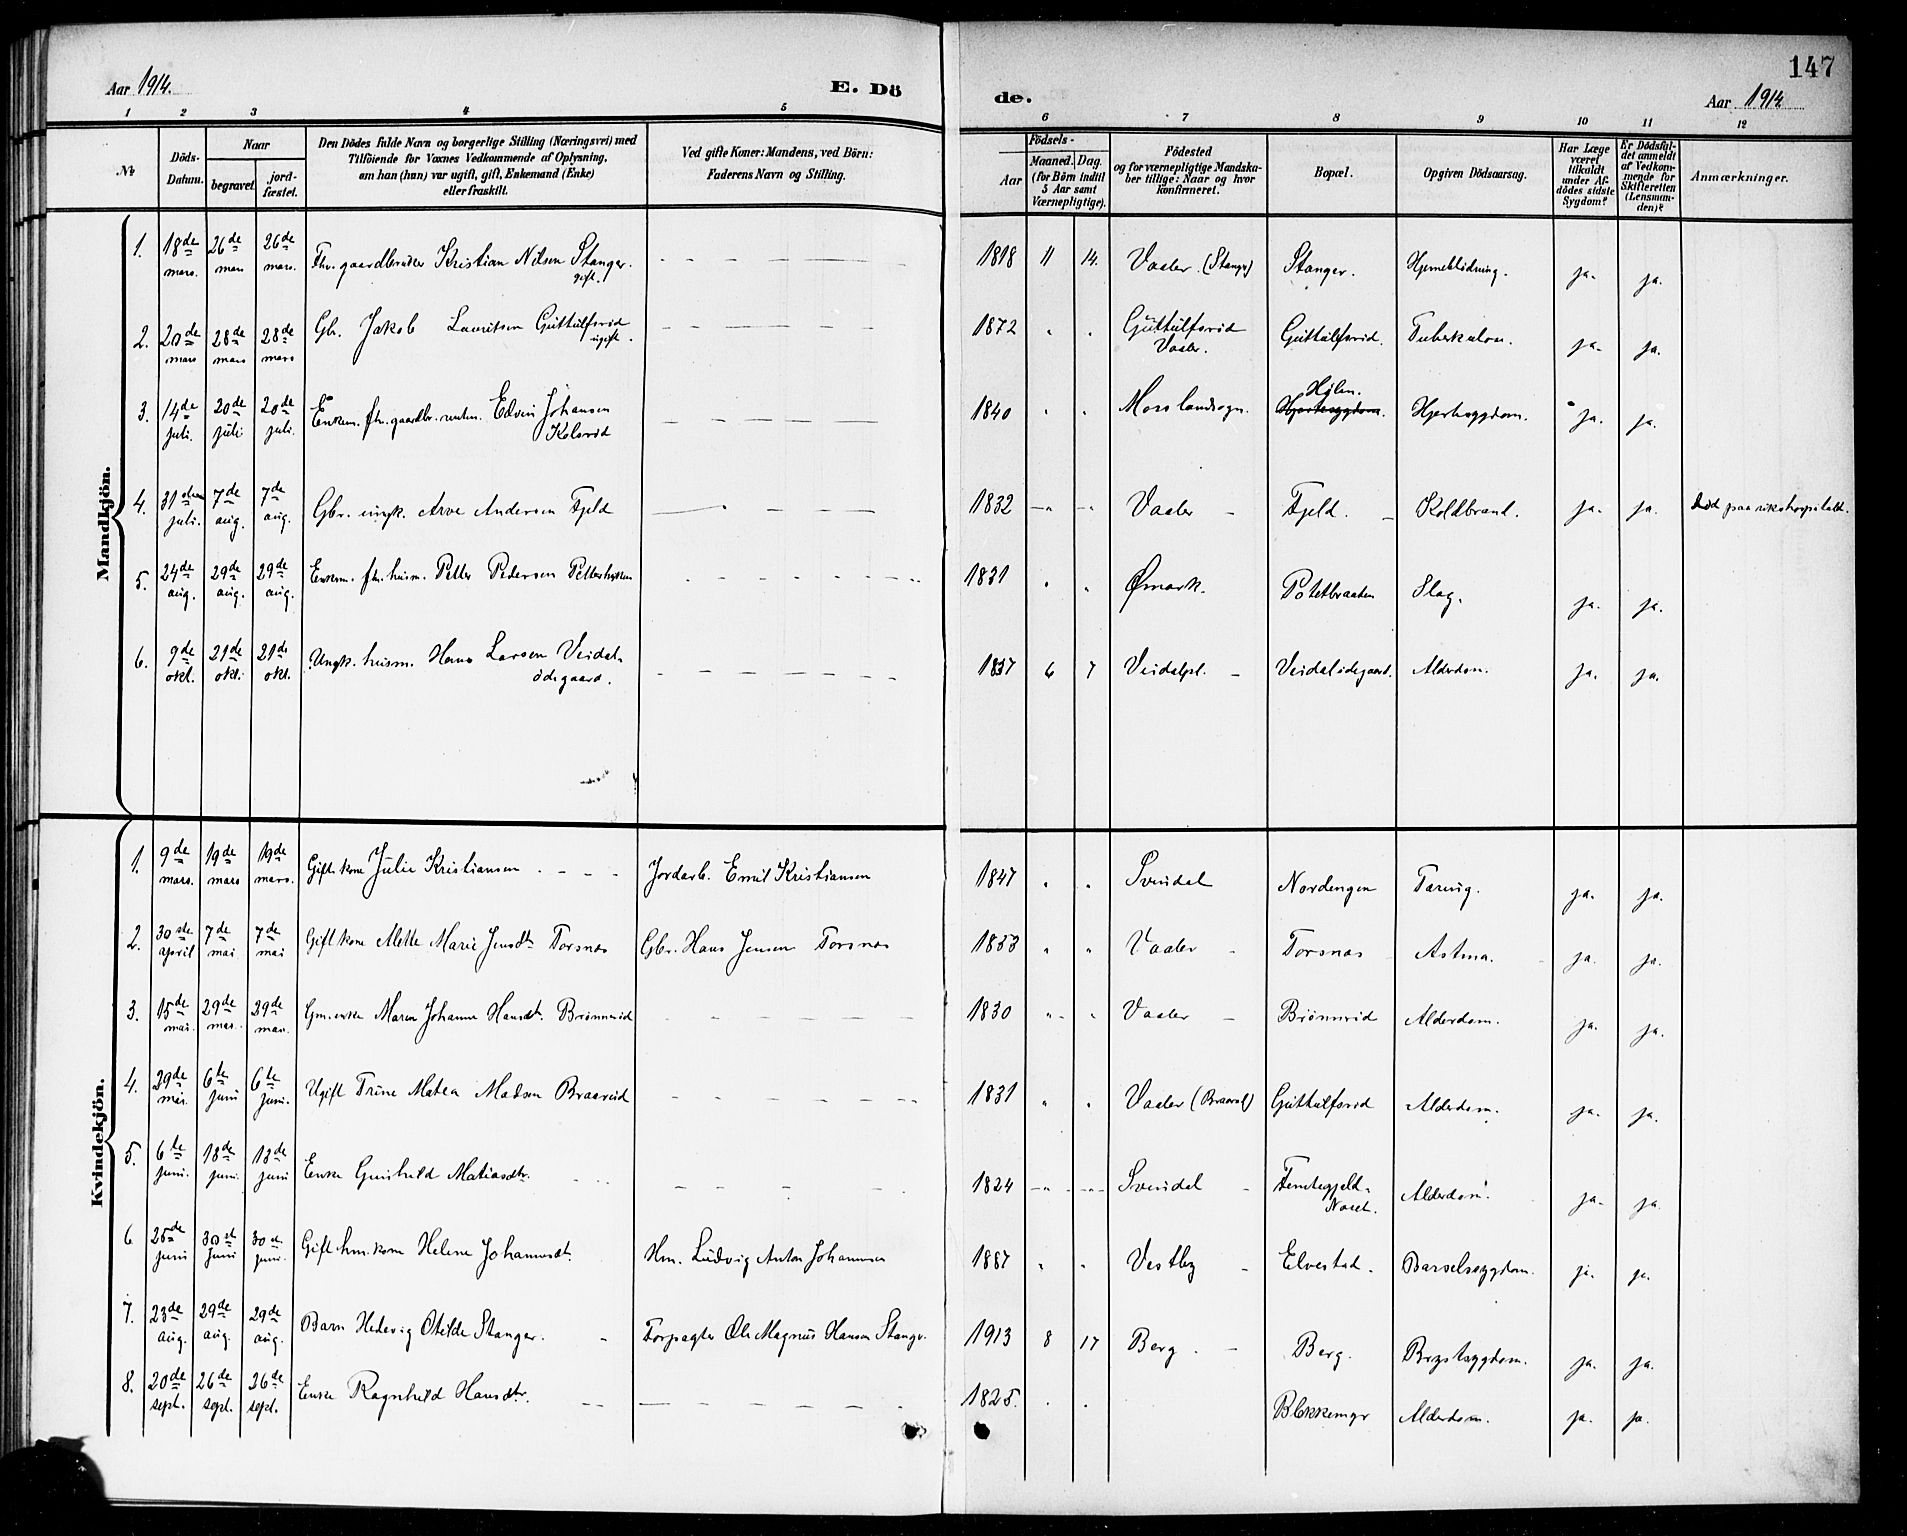 147
Aar 1914. E. Dö
de. Aar 1914
1 2 3 4 5
6 7 8 9 10 11 12
No
Döds-Datum.
Naar
begravet.
jord-fæstet.
Den Dödes fulde Navn og borgerlige Stilling (Næringsvei) med
Tilföiende for Voxnes Vedkommende af Oplysning,
om han (hun) var ugift, gift, Enkemand (Enke)
eller fraskilt.
Ved gifte Koner: Mandens, ved Börn:
Faderens Navn og Stilling.
Födsels-
Aar
Maaned. Dag.
(for Börn indtil
5 Aar samt
Værnepligtige).
Födested
og for værnepligtige Mandska-
ber tillige: Naar og hvor
konfirmeret.
Bopæl.
Opgiven Dödsaarsag.
Har Læge
været
tilkaldt
under Af-
dödes sidste
Sygdom?
Er Dödsfal-
det anmeldt
af Vedkom-
mende for
Skifteretten
(Lensman-
den)?
Anmærkninger.
Mandkjön.
1. 18de mars. 26de mars 26de mars. Fhv. gaardbruker Kristian Nilsen Stanger. gift. 1818 11 14. Vaaler. (Stanger) Stanger. Hjerneblödning. ja. ja.
2. 20de mars 28de mars 28de mars Gbr. Jakob Lauritsen Guttulfsrød ugift. 1872 " " Guttulfsrød Vaaler. Guttulfsrød. Tuberkulose. ja. ja.
3. 14de juli. 20de juli 20de juli. Enkem. fhv. gaardbr. Edvin Johansen Kolsrød 1840 " " Moss landsogn. Hjertesygdom. Hølen. Hjertesygdom. ja. ja.
4. 31 juli. 7de aug. 7de aug. Gbr. ungk. Arve Andersen Fjeld 1832 " " Vaaler Fjeld. Koldbrand. ja. ja. Död paa rikshospitalet.
5. 24de aug. 29de aug. 29de aug. Enkem. fhv. husm. Petter Pedersen 1831 " " Ømark. Potetbraaten Slag. ja. ja.
6. 9de okt. 21de okt. 21de okt. Ungk. husm. Hans Larsen Veidal-ödegaard. 1837 6 7 Veidalpl. Veidalödegaard. Alderdom. ja. ja.
Kvindekjön.
1. 9de mars. 19de mars 19de mars. Gift kone Julie Kristiansen Jordarb. Emil Kristiansen 1847 " " Svindal Nordengen Tæring. ja. ja.
2. 30ste april 7de mai 7de mai Gift kone Mette Marie Jensdt. Torsnes Gbr. Hans Jensen Torsnes 1833 " " Vaaler Torsnes Astma. ja. ja.
3. 15de mai. 29de mai. 29de mai. Gm. enke Maren Johanne Hansdt. Brönnerød 1830 " " Vaaler Brönnerød Alderdom. ja. ja.
4. 29de mai. 6te juni 6te juni. Ugift Trine Matea Madsen Braarud 1831 " " Vaaler (Braarud) Guttulfsrød Alderdom. ja. ja.
5. 6te juni. 13de juni. 13de juni Enke Gunhild Matiasdtr. 1824 " " Svindal Alderdom. ja. ja.
6 25de juni 30st juni 30st juni. Gift hm. kone Helene Johannesdt. Hm. Ludvig Anton Johannesen 1887 " " Vestby Elvestad. Barselssygdom. ja. ja.
7. 23de aug. 29de aug 29de aug. Barn Hedevig Otilde Stanger. Forpagter Ole Magnus Hansen Stanger. 1913 8 17 Berg. Berg. Brystsygdom. ja. ja.
8. 20de sept. 26de sept. 26de sept. Enke Ragnhild Hansdtr. 1825. " " Alderdom. ja. ja.